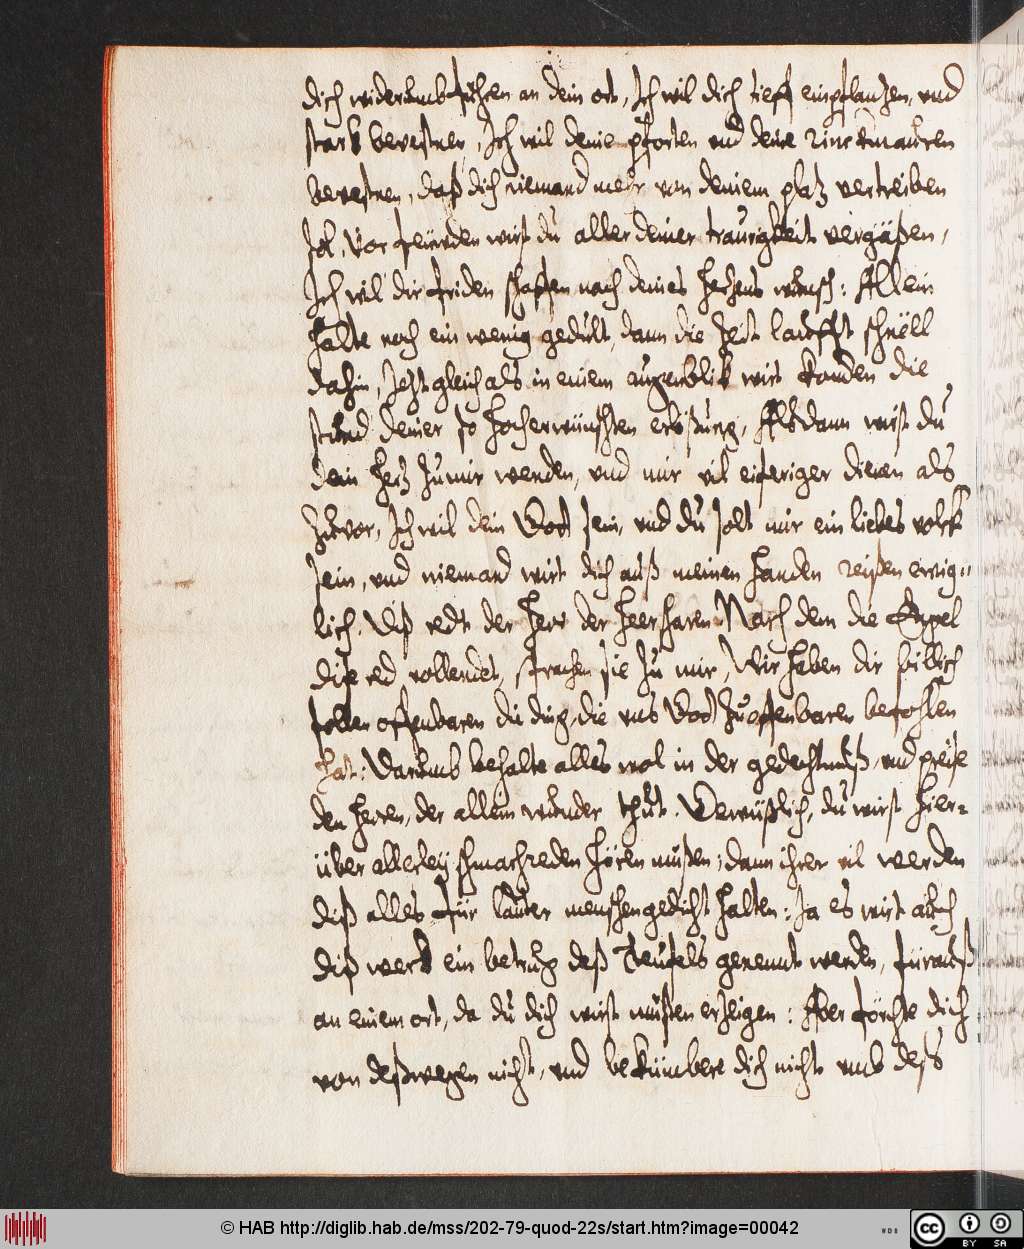 dich widerumb führen an dein ort, Ich wil dich tieff einpflantzen, und
stark bevestnen, Ich wil deine pforten und deine Rinckmauren
bevestnen, daß dich niemand mehr von deinem platz vertreiben
sol, Vor freüden wirst du aller deiner traurigkeit vergäßen,
Ich wil dir friden schaffen nach deines Hertzens wunsch: Allein
halte noch ein wenig gedult, dann die Zeit laufft schnëll
dahin, Jetzt gleich als in einem augenblik wirt komen die
stund deiner so hocherwünschten erlößung, Alsdann wirst du
dein Hertz zu mir wenden, und mir vil eiferiger dienen als
Zuvor, Ich wil dein Gott sein, und du solt mir ein liebes volck
sein, und niemand wirt dich auß meinen handen reißen ewig=
lich. Diß redt der Herr der Heerscharen. Nach dem die Engel
dise red vollendet, sprachen sie zu mir, Wir haben dir billich
sollen offenbaren die ding, die uns Gott zu offenbaren befohlen
hat: Darumb behalte alles wol in der gedechtnuß, und preise
den Herren, der allein wunder thut. Gewüßlich, du wirst hier=
über allerley schmachreden hören müßen, dann ihrer vil werden
diß alles für lauter menschengedicht halten: Ja es wirt auch
diß werk ein betrug deß Teufels genennt werden, fürauß
an einem ort, da du dich wirst müßen erzeigen: Aber förchte dich
von deßwegen nicht, und bekümbere dich nicht umb deß
© HAB http://diglib.hab.de/mss/202-79-quod-22s/start.htm?image=00042
WDB
cc BY SA